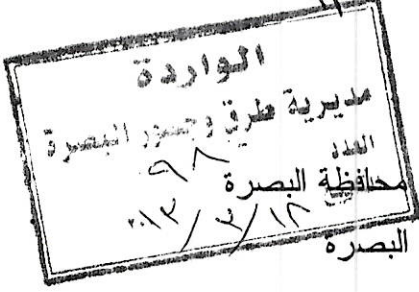 الواردة
مديرية طرق وجسور البصرة
العدد
٩٨
محافظة البصرة
٢٠١٣ / ٢ / ١٢
البصرة